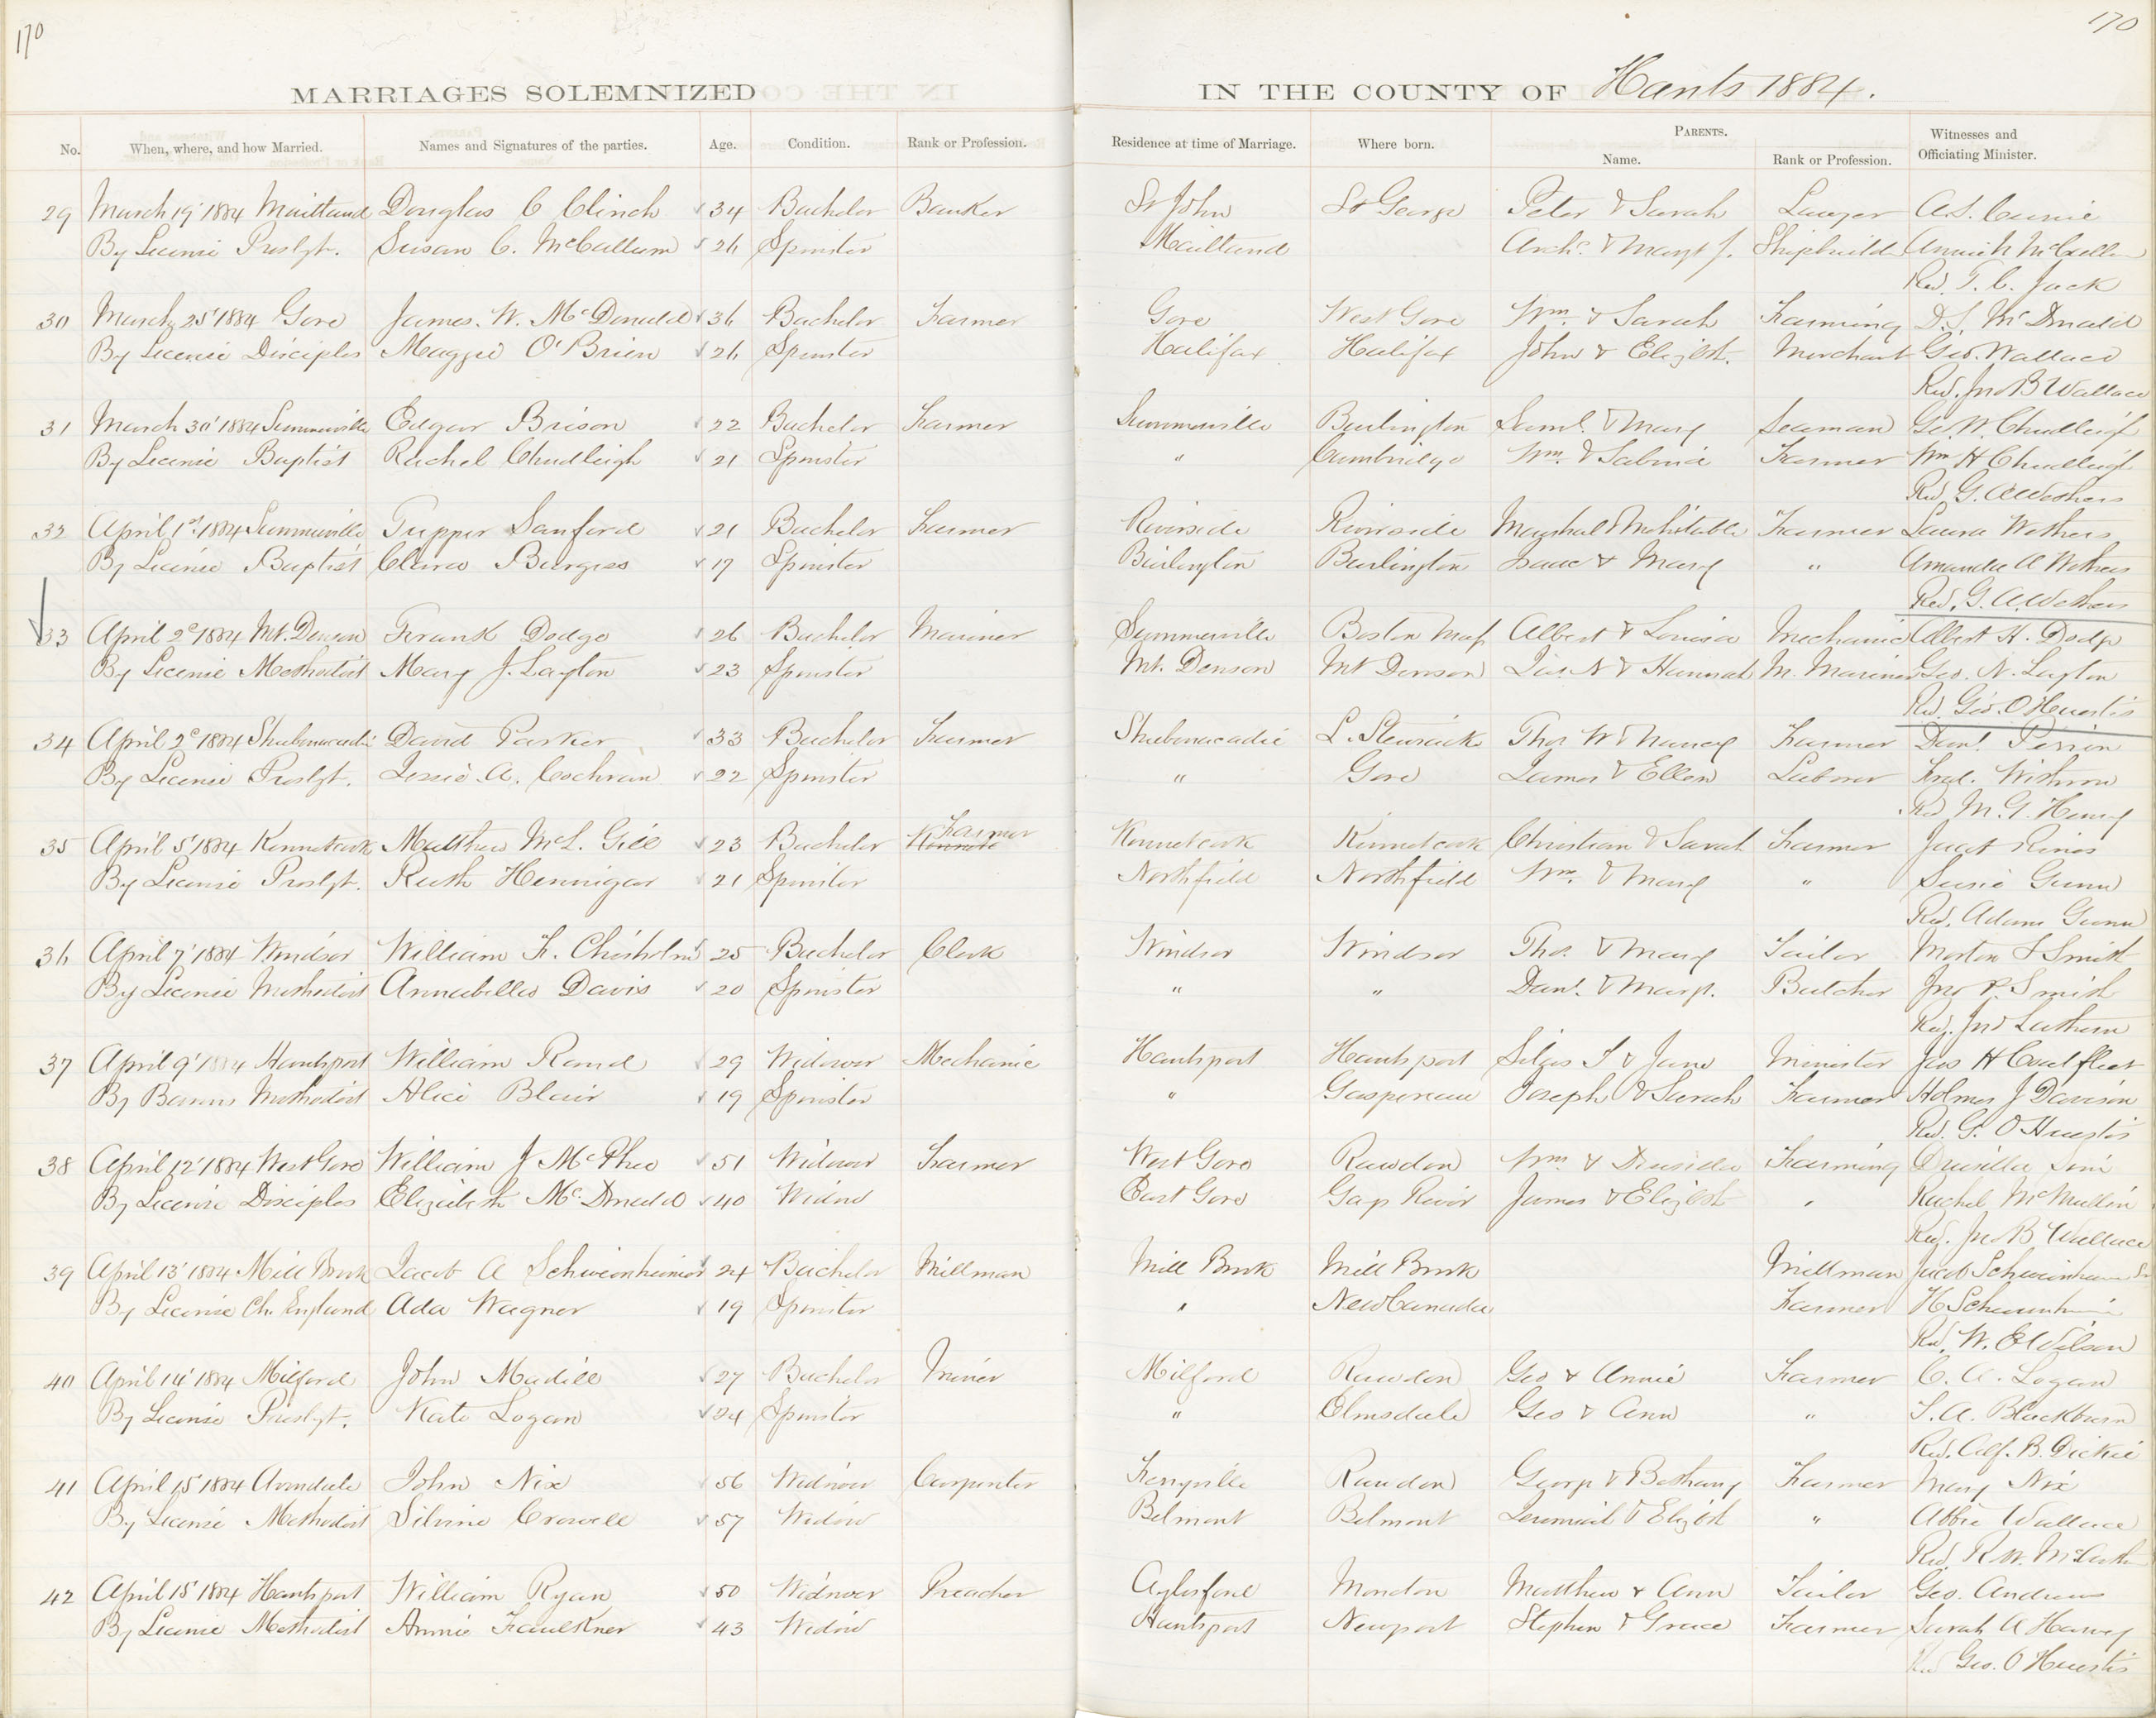 170
170
MARRIAGES SOLEMNIZED IN THE COUNTY OF Hants 1884.
No. When, where, and how Married. Names and Signatures of the parties. Age. Condition. Rank or Profession. Residence at time of Marriage. Where born. PARENTS. Name. Rank or Profession. Witnesses and Officiating Minister.
29 March 19' 1884 Maitland Douglas C Clinch 34 Bachelor Banker St John St George Peter & Sarah Lawyer A.S. Currie
By License Presbyt. Susan C. McCallum 26 Spinster Maitland Archd. & Margt J. Shipbuilder Annie
Rev. T. C. Jack
30 March 25' 1884 Gore James. W. McDonald 36 Bachelor Farmer Gore West Gore Wm. & Sarah Farming D.S. McDonald
By License Disciples Maggie O'Brien 26 Spinster Halifax Halifax John & Elizbt. Merchant Geo. Wallace
Rev. Jno B Wallace
31 March 30' 1884 Summerville Edgar Brison 22 Bachelor Farmer Summerville Burlington Saml. & Mary Seaman Geo. W. Chudleigh
By License Baptist Rachel Chudleigh 21 Spinster " Cambridge Wm. & Sabina Farmer Wm H Chudleigh
Rev. G. A Wethers
32 April 1st 1884 Summerville Tupper Sanford 21 Bachelor Farmer Riverside Riverside Marshal & Mehitable Farmer Laura Wethers
By License Baptist Clara Burgess 17 Spinster Burlington Burlington Isaac & Mary " Amanda A Wethers
Rev. G. A. Wethers
33 April 2d 1884 Mt. Denson Frank Dodge 26 Bachelor Mariner Summerville Boston Mass Albert & Louisa Mechanic Albert H. Dodge
By License Methodist Mary J. Layton 23 Spinster Mt. Denson Mt Denson Jas N & Hannah M. Mariner Geo. N. Layton
Rev. Geo. O Huestis
34 April 2d 1884 Shubenacadie David Parker 33 Bachelor Farmer Shubenacadie L. Stewiacke Thos W & Nancy Farmer Danl.
By License Presbyt. Jessie A. Cochran 22 Spinster " Gore James & Ellen Laborer Fred.
Rev M. G. Henry
35 April 5' 1884 Kennetcook Matthew McL. Gill 23 Bachelor Farmer Kennetcook Kennetcook Christian & Sarah Farmer
By License Presbyt. Ruth Hennigar 21 Spinster Northfield Northfield Wm. & Mary " Susie Gunn
Rev. Adam Gunn
36 April 7' 1884 Windsor William F. Chisholm 25 Bachelor Clerk Windsor Windsor Thos. & Mary Tailor Morton Smith
By License Methodist Annabella Davis 20 Spinster " " Danl. & Margt. Butcher Jno P. Smith
Rev. Jno Lathern
37 April 9' 1884 Hantsport William Rand 29 Widower Mechanic Hantsport Hantsport Silas T & Jane Minister Jas H Coalfleet
By Banns Methodist Alice Blair 19 Spinster " Gaspereau Joseph & Sarah Farmer Holmes J Davison
Rev. G. O Huestis
38 April 12' 1884 West Gore William J McPhee 51 Widower Farmer West Gore Rawdon Wm & Drusilla Farming Drusilla
By License Disciples Elizabeth McDonald 40 Widow East Gore Gays River James & Elizbt " Rachel McMullin
Rev. Jno B Wallace
39 April 13' 1884 Mill Brook Jacob A Schweinheimer 24 Bachelor Millman Mill Brook Mill Brook Millman Jacob
By License Ch. England Ada Wagner 19 Spinster " New Canada Farmer H
Rev. W. E Wilson
40 April 14' 1884 Milford John Madill 27 Bachelor Miner Milford Rawdon Geo & Annie Farmer C. A. Logan
By License Presbyt. Kate Logan 24 Spinster " Elmsdale Geo & Ann " S. A. Blackburn
Rev. Alf. B. Dickie
41 April 15' 1884 Avondale John Nix 56 Widower Carpenter Rawdon George & Bethany Farmer Mary Nix
By License Methodist Silvine Crowell 57 Widow Belmont Belmont Jeremiah & Elizbt " Abbie Wallace
Rev. R. W.
42 April 15' 1884 Hantsport William Ryan 50 Widower Preacher Aylesford Matthew & Ann Tailor Geo. Andrews
By License Methodist Annie Faulkner 43 Widow Hantsport Newport Stephen & Grace Farmer Sarah A Harvey
Rev Geo. O Huestis